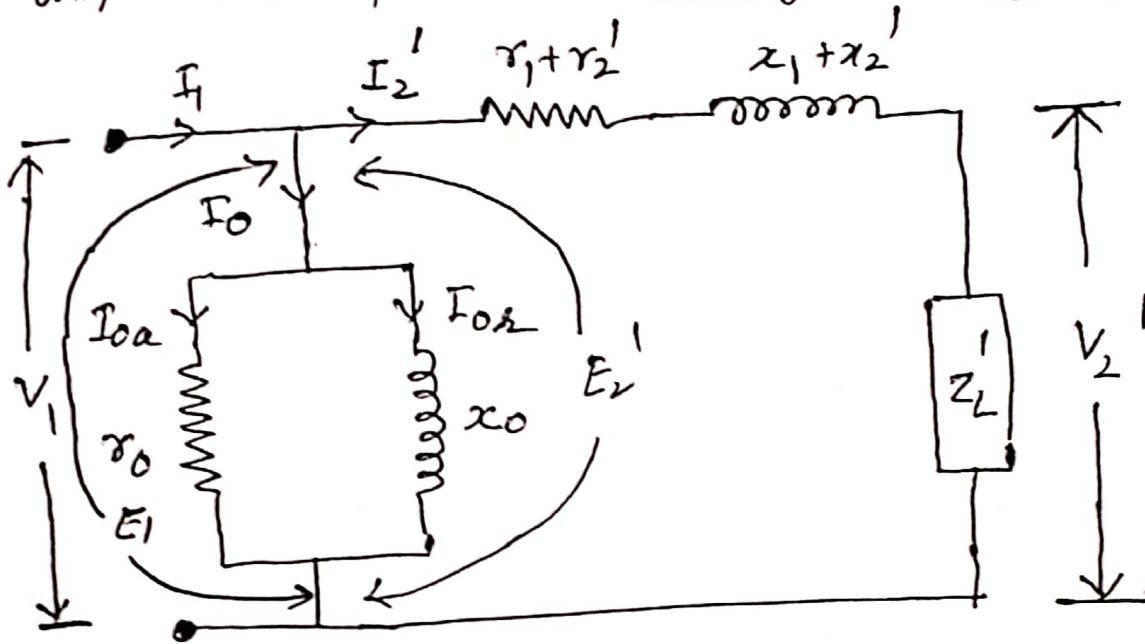 I1 I2' r1+r2' x1+x2'
I0
I0a I0r
V1 r0 x0 E2' ZL' V2'
E1